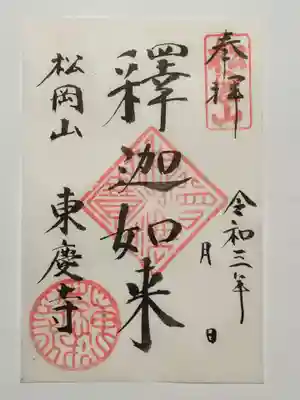 奉拝
令和三年
月 日
釋迦如来
松岡山
東慶寺